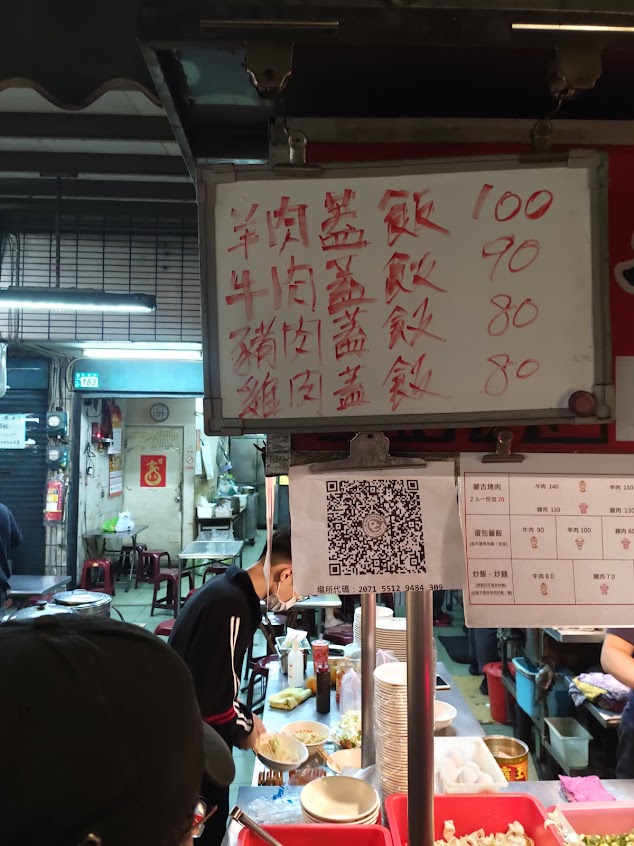 羊肉蓋飯 100
牛肉蓋飯 90
豬肉蓋飯 80
雞肉蓋飯 80
163
場所代碼：2071 5512 9484 309
蒙古烤肉
2人一份加20
牛肉 140
羊肉 150
豬肉 130
雞肉 130
蛋包蓋飯
牛肉 90
羊肉 100
豬肉 80
炒飯、炒麵
牛肉 80
豬肉 70